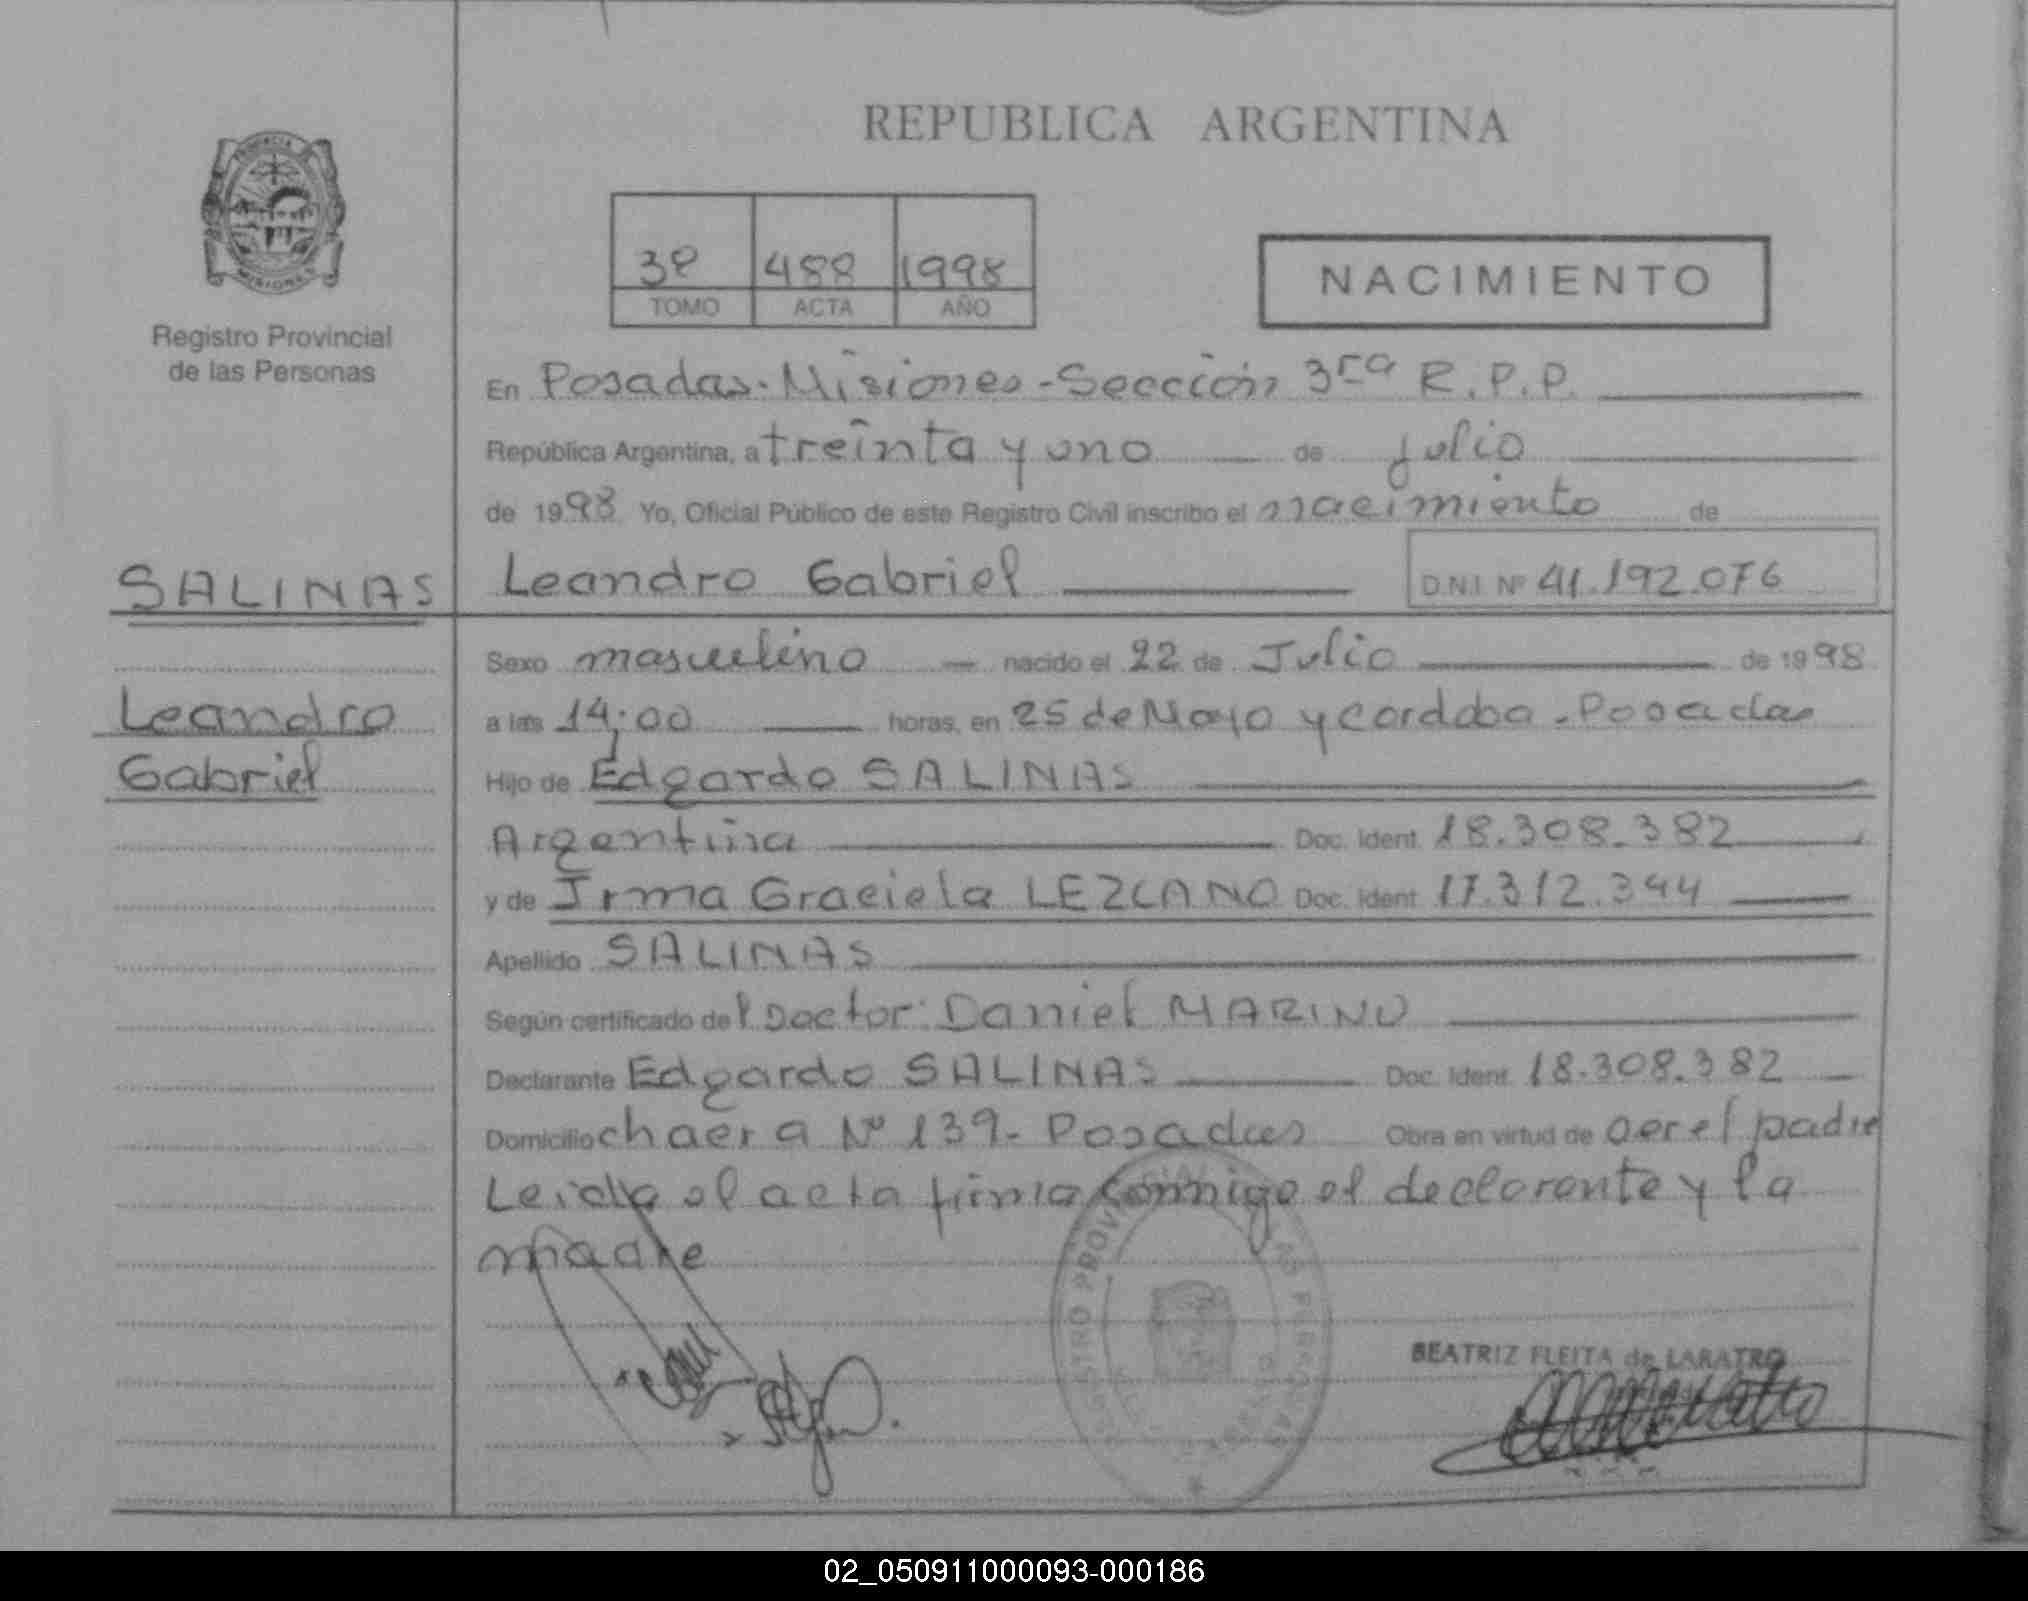 REPUBLICA ARGENTINA
3º 488 1998
TOMO ACTA AÑO
NACIMIENTO
Registro Provincial
de las Personas
En Posadas - Misiones - Sección 3ra R.P.P.
República Argentina, a treinta y uno de julio
de 1998 Yo, Oficial Público de este Registro Civil inscribo el nacimiento de
SALINAS
Leandro Gabriel D.N.I. Nº 41.192.076
Sexo masculino nacido el 22 de Julio de 1998
Leandro
a las 14:00 horas, en 25 de Mayo y Cordoba - Posadas
Gabriel
Hijo de Edgardo SALINAS
Argentina Doc. Ident. 18.308.382
y de Irma Graciela LEZCANO Doc. Ident. 17.312.344
Apellido SALINAS
Según certificado del Doctor: Daniel MARINO
Declarante Edgardo SALINAS Doc. Ident. 18.308.382
Domicilio chacra Nº 139 - Posadas Obra en virtud de ser el padre
Leida el acta firma conmigo el declarante y la
madre
BEATRIZ FLEITA de LARATRO
02_050911000093-000186